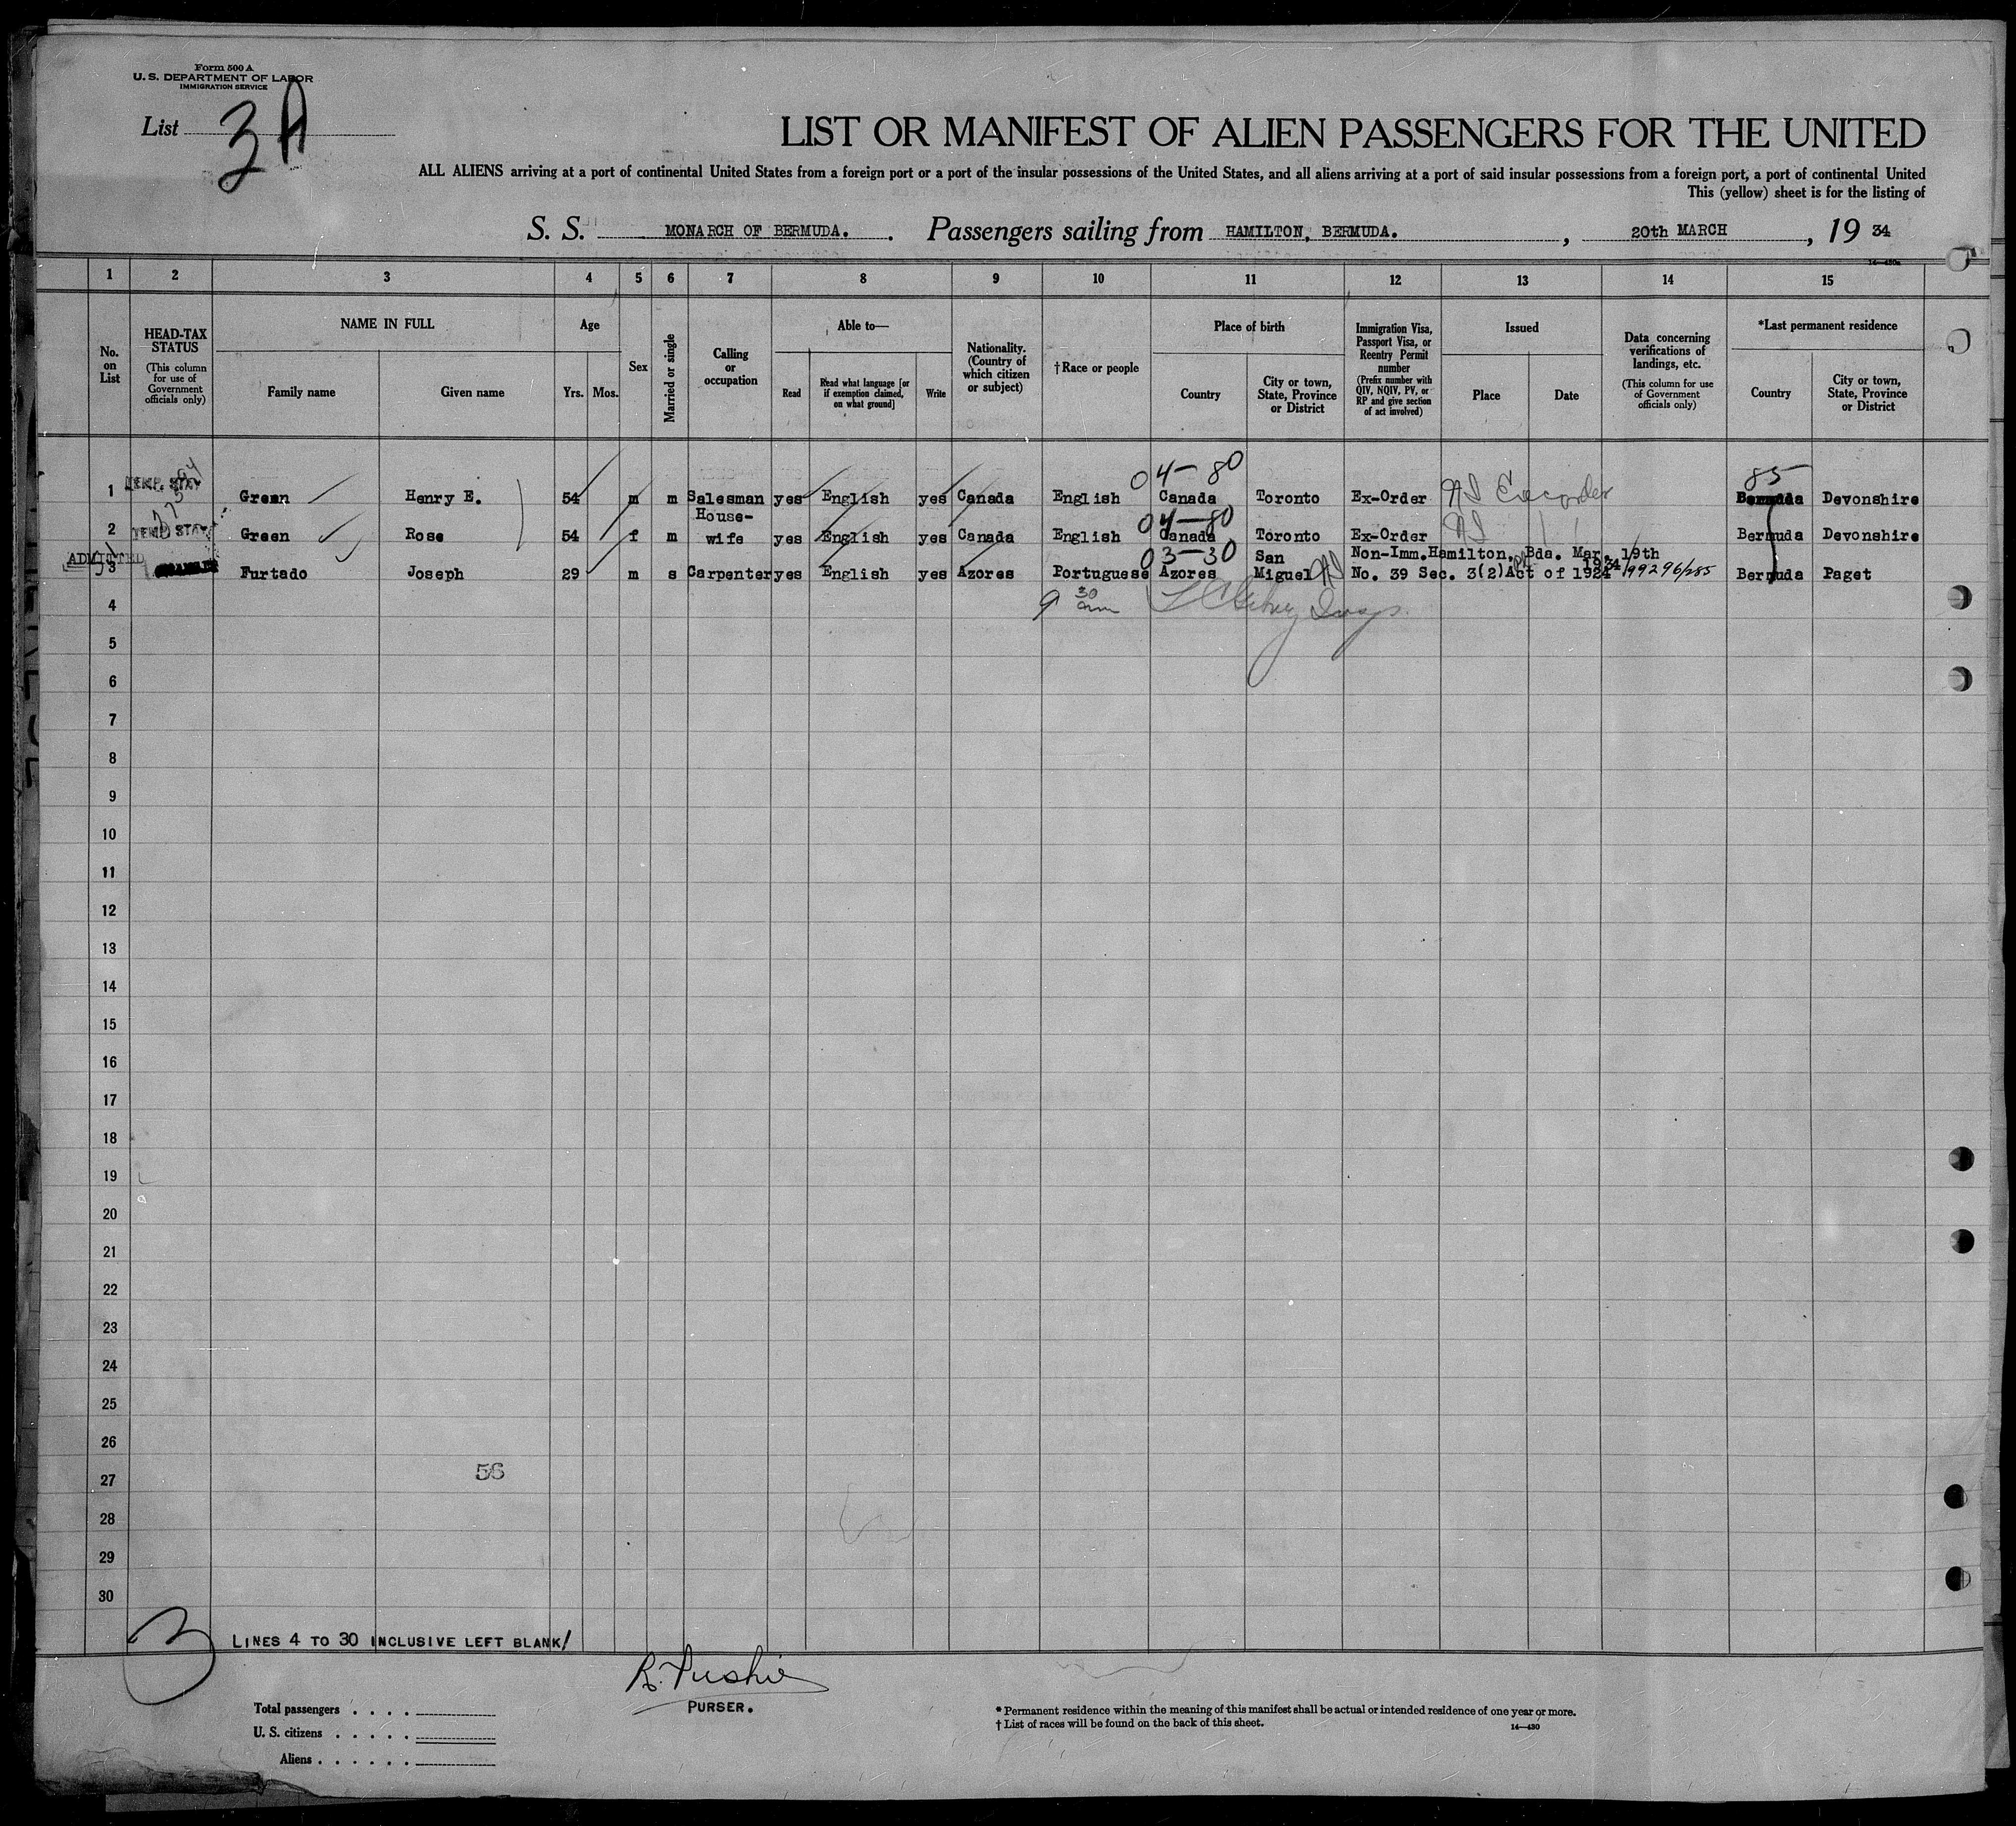 Form 500 A
U. S. DEPARTMENT OF LABOR
IMMIGRATION SERVICE
List 3A
LIST OR MANIFEST OF ALIEN PASSENGERS FOR THE UNITED
ALL ALIENS arriving at a port of continental United States from a foreign port or a port of the insular possessions of the United States, and all aliens arriving at a port of said insular possessions from a foreign port, a port of continental United
This (yellow) sheet is for the listing of
S. S. MONARCH OF BERMUDA. . Passengers sailing from HAMILTON, BERMUDA. , 20th MARCH , 19 34
1 2 3 4 5 6 7 8 9 10 11 12 13 14 15
No. on List
HEAD-TAX STATUS
(This column for use of Government officials only)
NAME IN FULL
Family name
Given name
Age
Yrs. Mos.
Sex
Married or single
Calling or occupation
Able to—
Read
Read what language [or if exemption claimed, on what ground]
Write
Nationality. (Country of which citizen or subject)
†Race or people
Place of birth
Country
City or town, State, Province or District
Immigration Visa, Passport Visa, or Reentry Permit number
(Prefix number with QIV, NQIV, PV, or RP and give section of act involved)
Issued
Place
Date
Data concerning verifications of landings, etc.
(This column for use of Government officials only)
*Last permanent residence
Country
City or town, State, Province or District
04-80 85
1 Green Henry E. 54 m m Salesman yes English yes Canada English Canada Toronto Ex-Order Bermuda Devonshire
04-80
2 TEMP STAY Green Rose 54 f m House-wife yes English yes Canada English Canada Toronto Ex-Order Bermuda Devonshire
ADMITTED
03-30 San Non-Imm. Hamilton, Bda. Mar. 19th 1934
3 Furtado Joseph 29 m s Carpenter yes English yes Azores Portuguese Azores Miguel No. 39 Sec. 3(2) Act of 1924 99296/285 Bermuda Paget
4 9 30
5
6
7
8
9
10
11
12
13
14
15
16
17
18
19
20
21
22
23
24
25
26
27 56
28
29
30
3 LINES 4 TO 30 INCLUSIVE LEFT BLANK/
PURSER.
Total passengers . . . .
U. S. citizens . . . . .
Aliens . . . . . .
* Permanent residence within the meaning of this manifest shall be actual or intended residence of one year or more.
† List of races will be found on the back of this sheet.
14—430